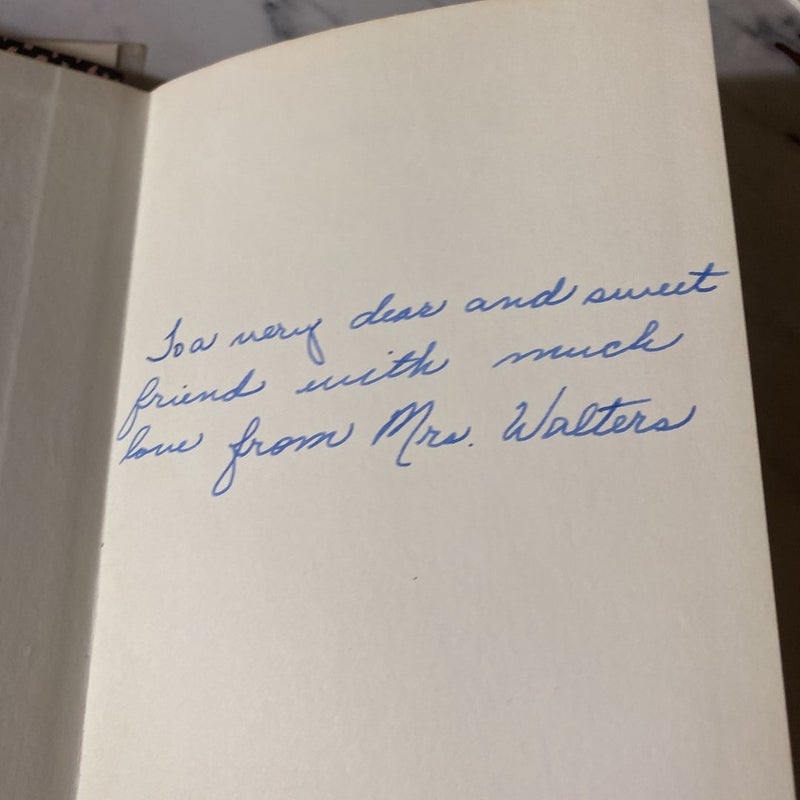 To a very dear and sweet
friend with much
love from Mrs. Walters